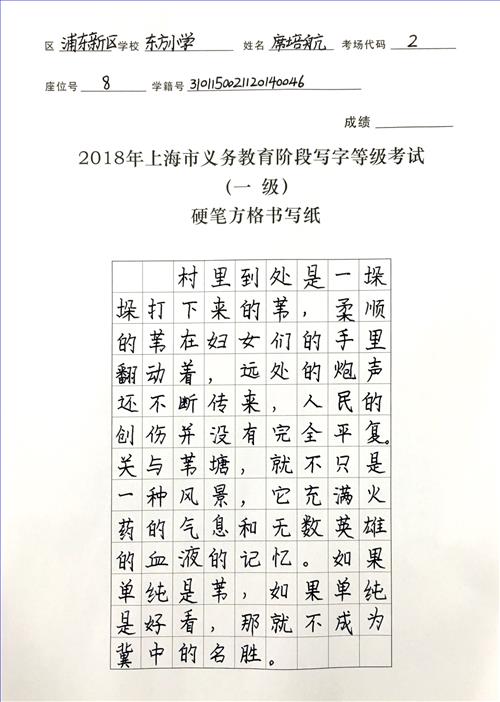 区 浦东新区 学校 东方小学 姓名 席培航 考场代码 2
座位号 8 学籍号 3101150021120140046
成绩
2018年上海市义务教育阶段写字等级考试
（一 级）
硬笔方格书写纸
村里到处是一垛
垛打下来的苇，柔顺
的苇在妇女们的手里
翻动着，远处的炮声
还不断传来，人民的
创伤并没有完全平复。
关与苇塘，就不只是
一种风景，它充满火
药的气息和无数英雄
的血液的记忆。如果
单纯是苇，如果单纯
是好看，那就不成为
冀中的名胜。